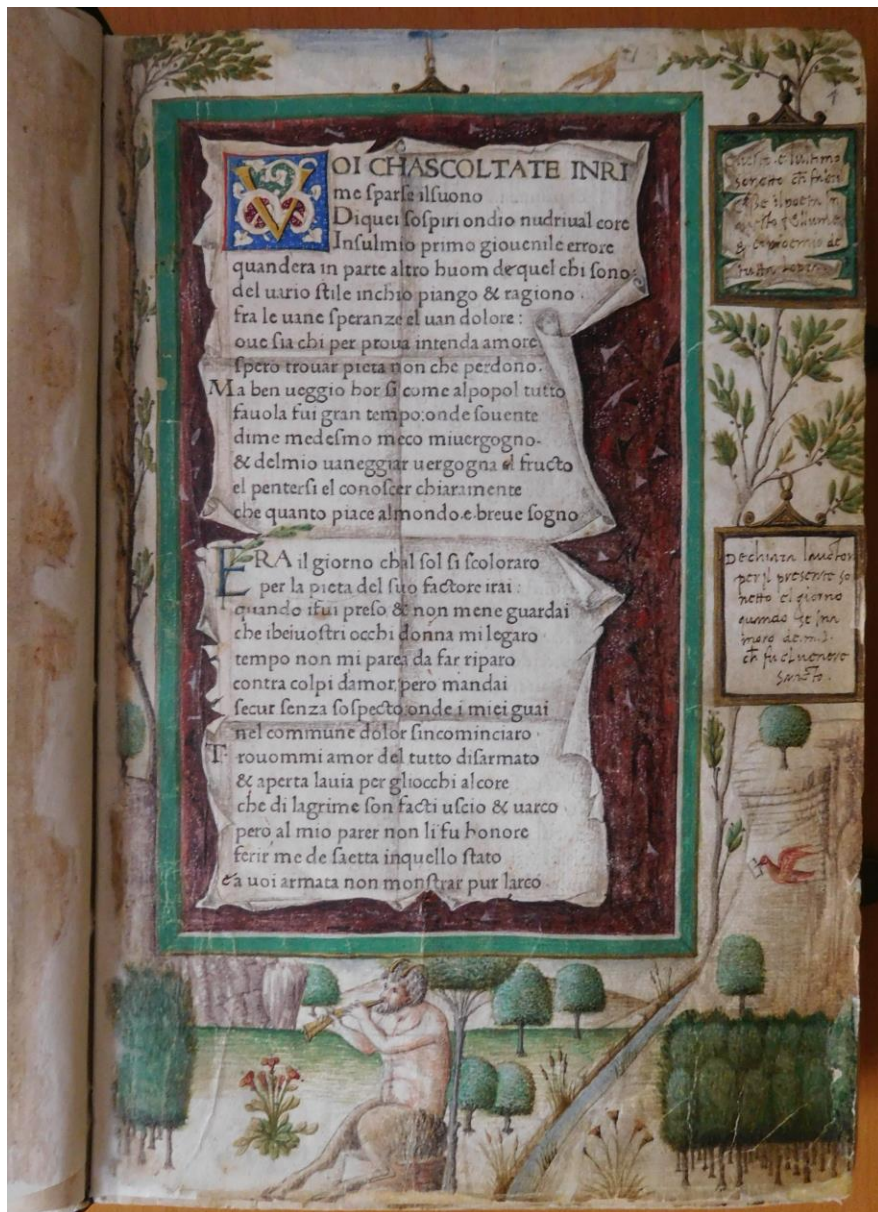 VOI CHASCOLTATE INRI
me sparse ilsuono
Diquei sospiri ondio nudriual core
Insulmio primo giouenile errore
quandera in parte altro huom dequel chi sono:
del uario stile inchio piango & ragiono
fra le uane speranze el uan dolore:
oue sia chi per proua intenda amore
spero trouar pieta non che perdono.
Ma ben ueggio hor si come alpopol tutto
fauola fui gran tempo:onde souente
dime medesmo meco miuergogno.
& delmio uaneggiar uergogna el fructo
el pentersi el conoscer chiaramente
che quanto piace almondo.e.breue sogno
ERA il giorno chal sol si scoloraro
per la pieta del suo factore irai
quando ifui preso & non mene guardai
che ibeiuostri occhi donna mi legaro
tempo non mi parea da far riparo
contra colpi damor,pero mandai
secur senza sospecto onde i miei guai
nel commune dolor sincominciaro
Trouommi amor del tutto disarmato
& aperta lauia per gliocchi alcore
che di lagrime son facti uscio & uarco
pero al mio parer non li fu honore
ferir me de saetta inquello stato
ea uoi armata non monstrar pur larco
1
sonetto
tutta
Dechiara lauctor
per il presente so
netto el giorno